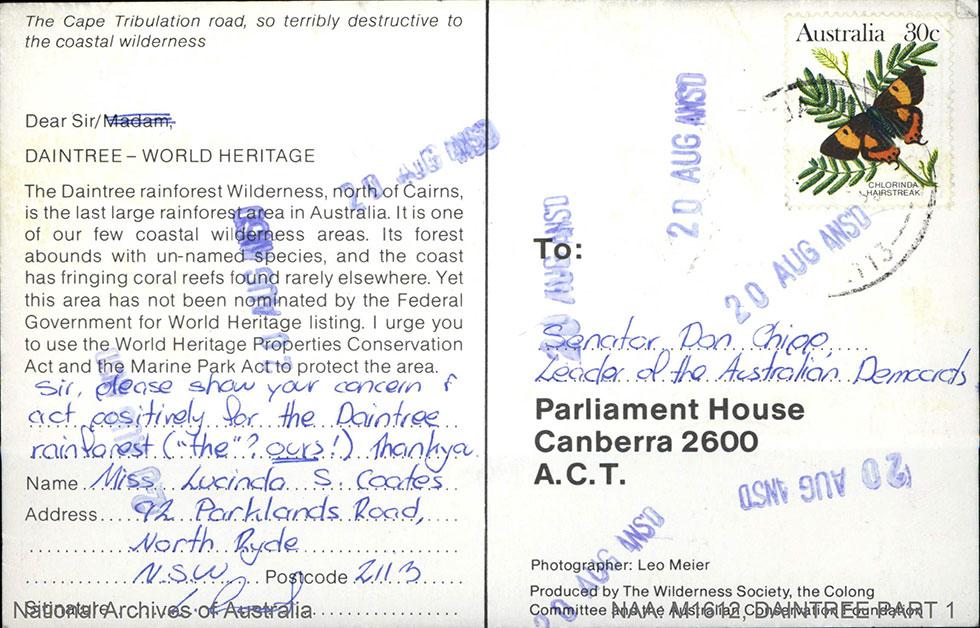 The Cape Tribulation road, so terribly destructive to
the coastal wilderness
Dear Sir/Madam,
DAINTREE – WORLD HERITAGE
The Daintree rainforest Wilderness, north of Cairns,
is the last large rainforest area in Australia. It is one
of our few coastal wilderness areas. Its forest
abounds with un-named species, and the coast
has fringing coral reefs found rarely elsewhere. Yet
this area has not been nominated by the Federal
Government for World Heritage listing. I urge you
to use the World Heritage Properties Conservation
Act and the Marine Park Act to protect the area.
Sir, please show your concern &
act positively for the Daintree
rainforest ("the"? ours!) Thankya.
Name Miss Lucinda S. Coates
Address 92 Parklands Road,
North Ryde
N.S.W. Postcode 2113
Signature
Australia 30c
CHLORINDA
HAIRSTREAK
2113
20 AUG ANSD
20 AUG ANSD
20 AUG ANSD
20 AUG ANSD
20 AUG ANSD
20 AUG ANSD
20 AUG ANSD
To:
Senator Don Chipp,
Leader of the Australian Democrats
Parliament House
Canberra 2600
A.C.T.
Photographer: Leo Meier
Produced by The Wilderness Society, the Colong
Committee and the Australian Conservation Foundation
National Archives of Australia
NAA: M1612, DAINTREE PART 1